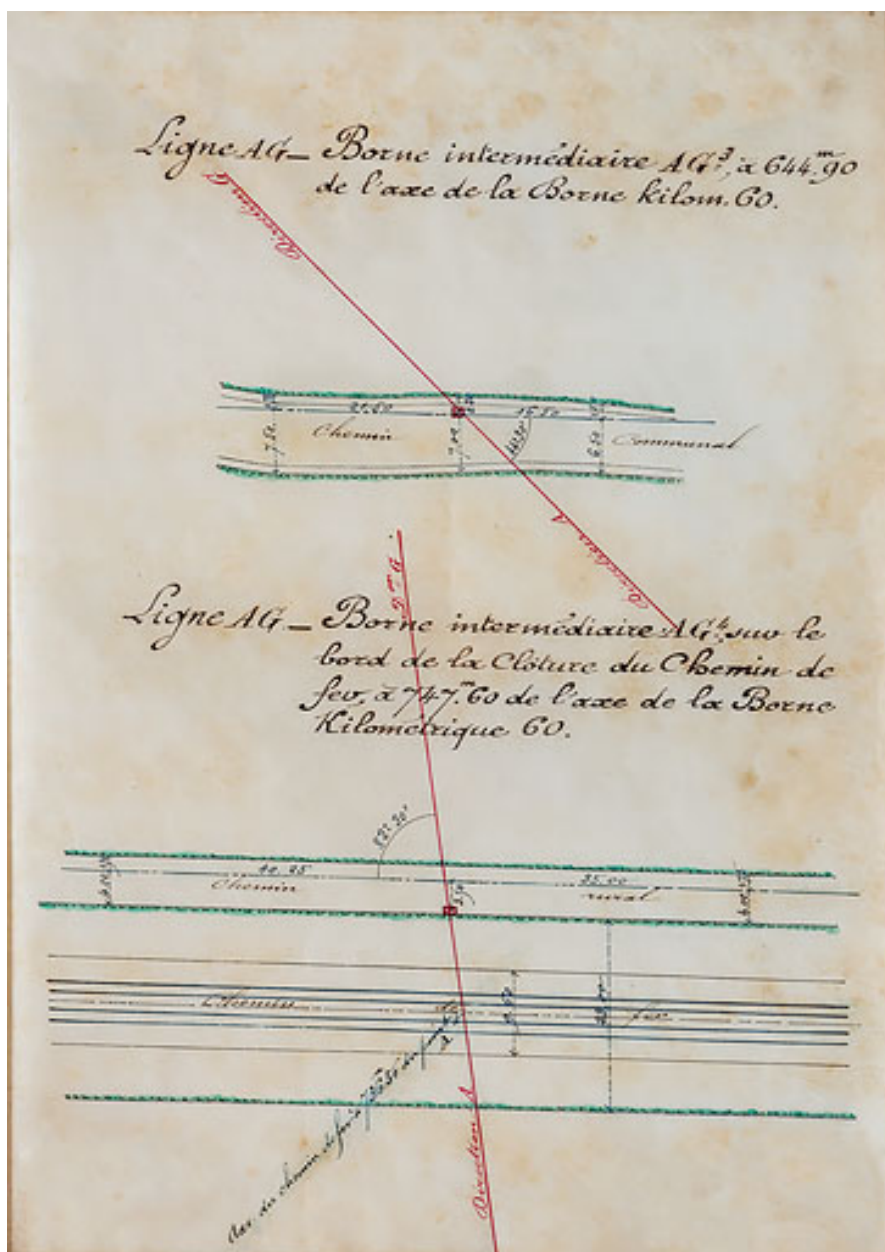 Ligne AG — Borne intermédiaire AG³, à 644.ᵐ90
de l'axe de la Borne kilom. 60.
Direction G
21.50
15.50
Chemin
Communal
7.50
7.00
6.50
Direction A
Dᵒⁿ G
Ligne AG — Borne intermédiaire AG⁴, sur le
bord de la Clôture du Chemin de
fer, à 747.ᵐ60 de l'axe de la Borne
Kilométrique 60.
82°.30'
35.00
Chemin
rural
Chemin
fer
Axe du chemin de fer à
Direction A